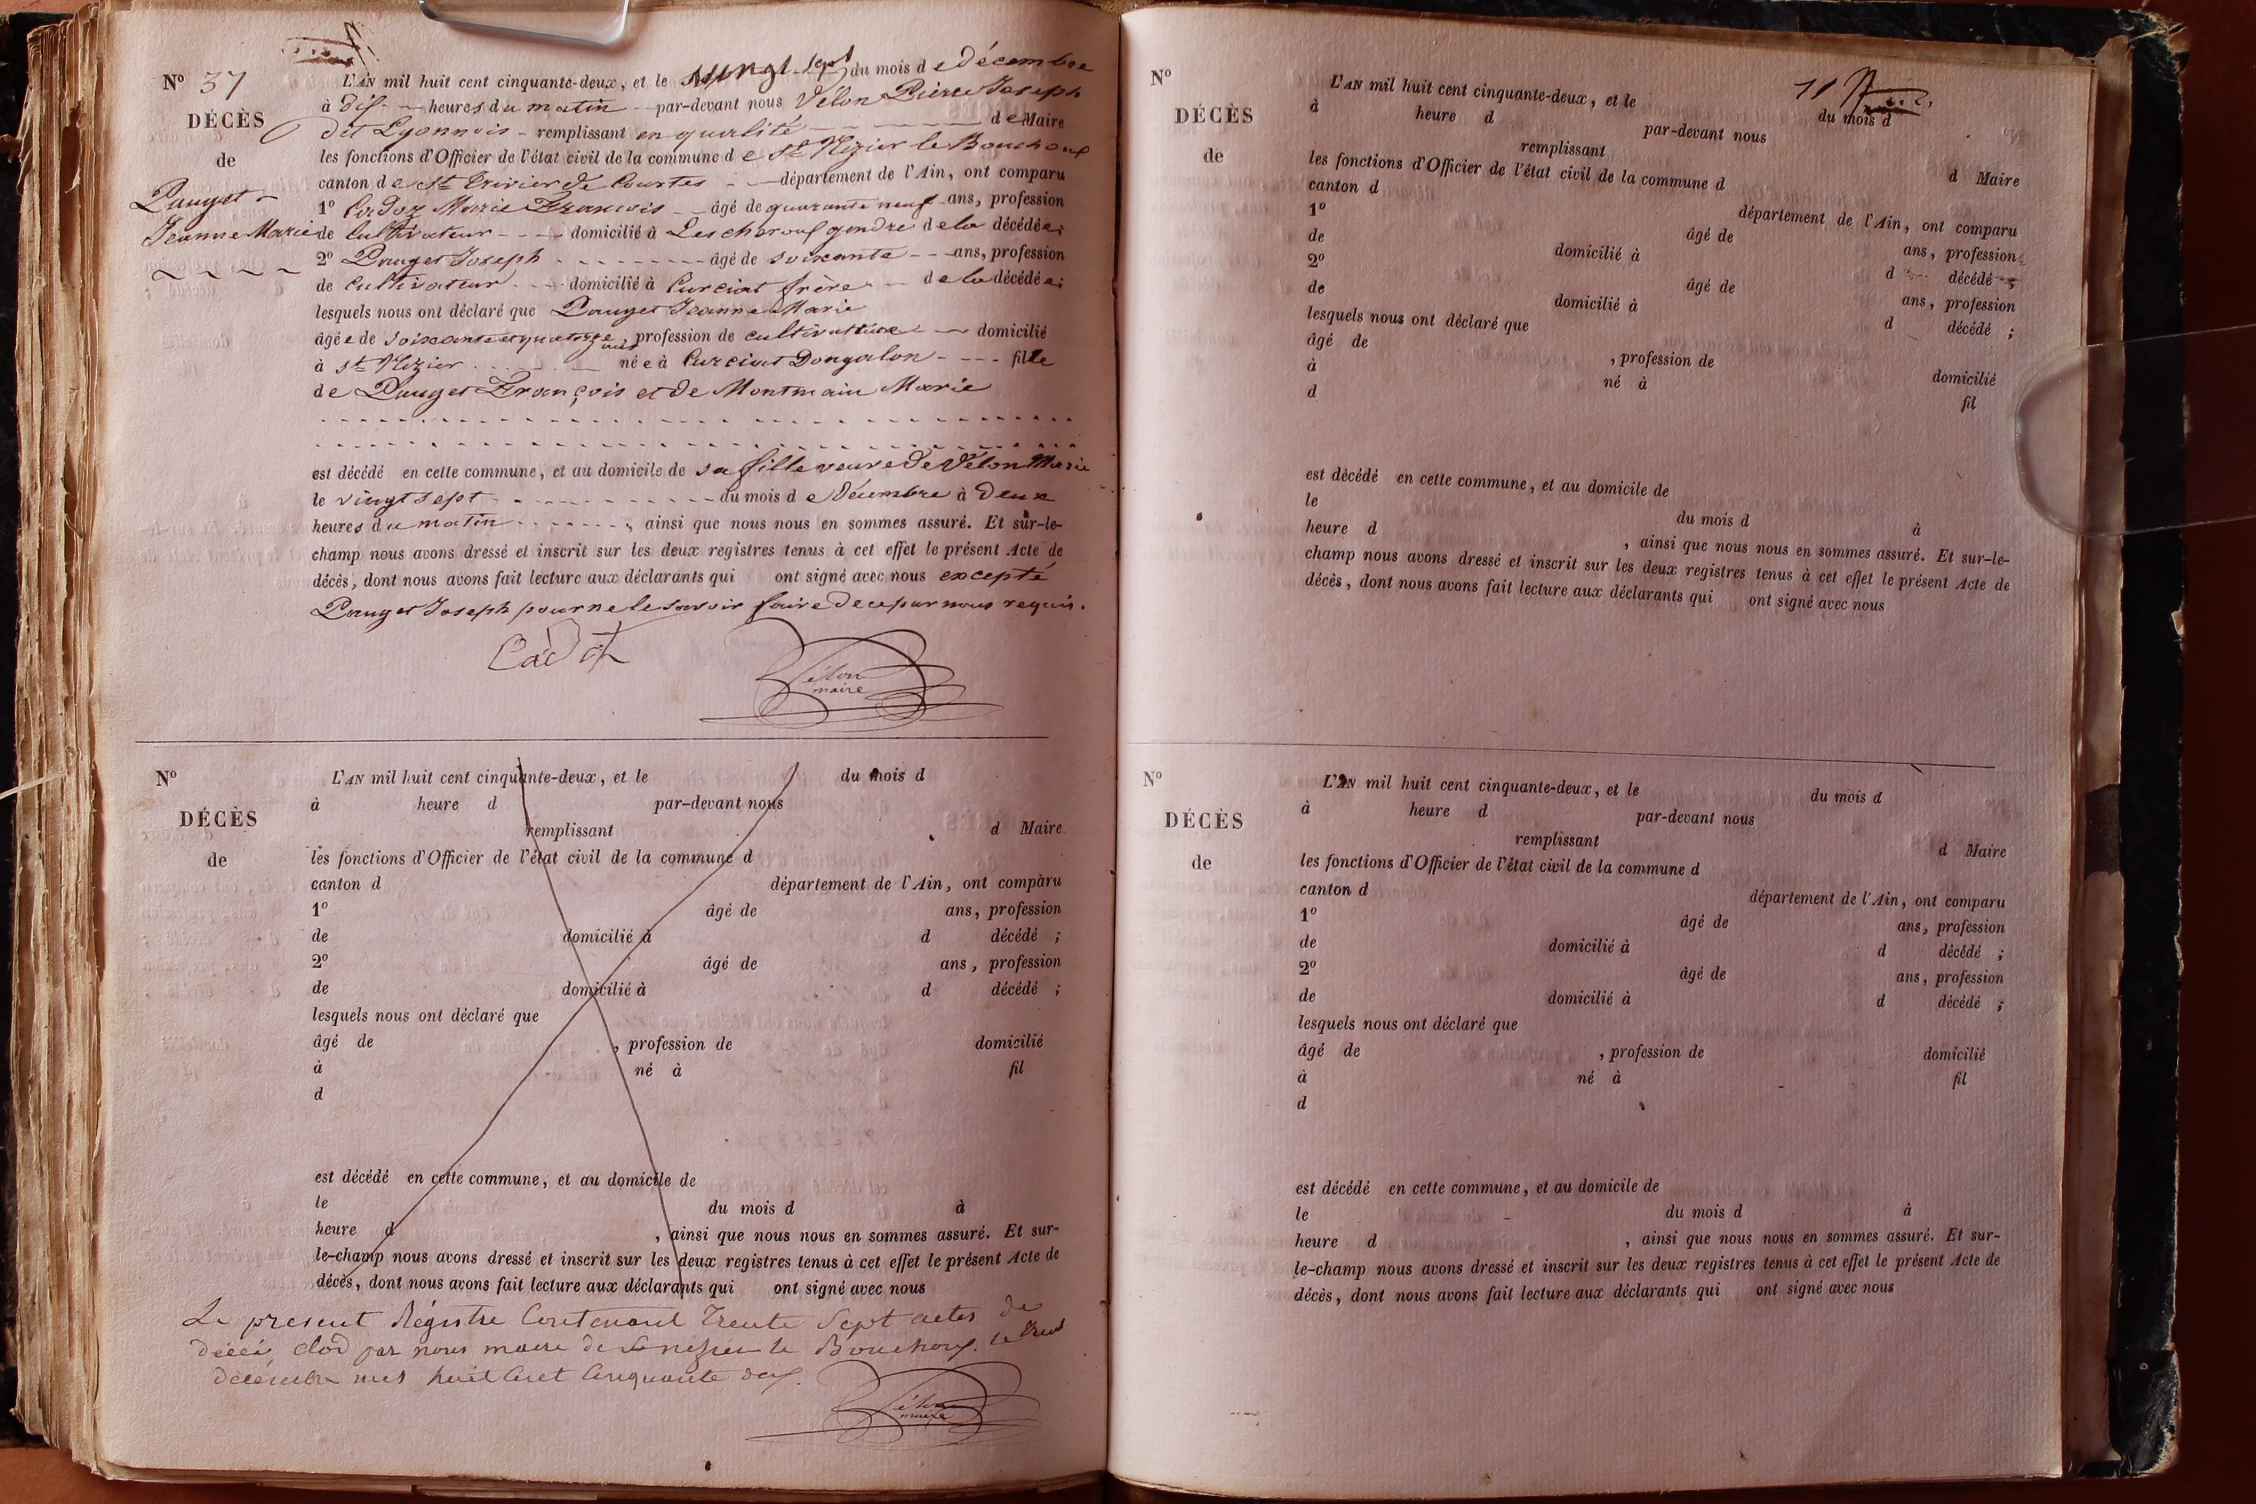 N° 37
DÉCÈS
de
Pauget
Jeanne Marie
L'AN mil huit cent cinquante-deux, et le vingt sept du mois de décembre
à dix heures du matin par-devant nous Vélon Pierre Joseph
dit Lyonnois remplissant en qualité de Maire
les fonctions d'Officier de l'état civil de la commune de St Nizier le Bouchoux
canton de St Trivier de Courtes département de l'Ain, ont comparu
1° Cadoz Marie François âgé de quarante neuf ans, profession
de Cultivateur domicilié à Lescheroux gendre de la décédée;
2° Pauget Joseph âgé de soixante ans, profession
de Cultivateur domicilié à Curciat frère de la décédée;
lesquels nous ont déclaré que Pauget Jeanne Marie
âgée de soixante et quatorze ans, profession de cultivatrice domicilié
à St Nizier née à Curciat Dongalon fille
de Pauget François et de Montmain Marie
est décédé en cette commune, et au domicile de sa fille veuve de Vélon Marie
le vingt sept du mois de décembre à deux
heures du matin, ainsi que nous nous en sommes assuré. Et sur-le-
champ nous avons dressé et inscrit sur les deux registres tenus à cet effet le présent Acte de
décès, dont nous avons fait lecture aux déclarants qui ont signé avec nous excepté
Pauget Joseph pour ne le savoir faire de ce par nous requis.
Cadoz
Vélon
maire
N°
DÉCÈS
de
L'AN mil huit cent cinquante-deux, et le du mois d
à heure d par-devant nous
remplissant d Maire
les fonctions d'Officier de l'état civil de la commune d
canton d département de l'Ain, ont comparu
1° âgé de ans, profession
de domicilié à d décédé ;
2° âgé de ans, profession
de domicilié à d décédé ;
lesquels nous ont déclaré que
âgé de , profession de domicilié
à né à fil
d
est décédé en cette commune, et au domicile de
le du mois d à
heure d , ainsi que nous nous en sommes assuré. Et sur-
le-champ nous avons dressé et inscrit sur les deux registres tenus à cet effet le présent Acte de
décès, dont nous avons fait lecture aux déclarants qui ont signé avec nous
Le présent Régistre Contenant Trente Sept actes de
décès clos par nous maire de St nizier le Bouchoux le
décembre mil huit Cent Cinquante deux.
Vélon
maire
N°
DÉCÈS
de
L'AN mil huit cent cinquante-deux, et le du mois d
à heure d par-devant nous
remplissant d Maire
les fonctions d'Officier de l'état civil de la commune d
canton d département de l'Ain, ont comparu
1° âgé de ans, profession
de domicilié à d décédé
2° âgé de ans, profession
de domicilié à d décédé ;
lesquels nous ont déclaré que
âgé de , profession de domicilié
à né à fil
d
est décédé en cette commune, et au domicile de
le du mois d à
heure d , ainsi que nous nous en sommes assuré. Et sur-le-
champ nous avons dressé et inscrit sur les deux registres tenus à cet effet le présent Acte de
décès, dont nous avons fait lecture aux déclarants qui ont signé avec nous
N°
DÉCÈS
de
L'AN mil huit cent cinquante-deux, et le du mois d
à heure d par-devant nous
remplissant d Maire
les fonctions d'Officier de l'état civil de la commune d
canton d département de l'Ain, ont comparu
1° âgé de ans, profession
de domicilié à d décédé ;
2° âgé de ans, profession
de domicilié à d décédé ;
lesquels nous ont déclaré que
âgé de , profession de domicilié
à né à fil
d
est décédé en cette commune, et au domicile de
le du mois d à
heure d , ainsi que nous nous en sommes assuré. Et sur-
le-champ nous avons dressé et inscrit sur les deux registres tenus à cet effet le présent Acte de
décès, dont nous avons fait lecture aux déclarants qui ont signé avec nous